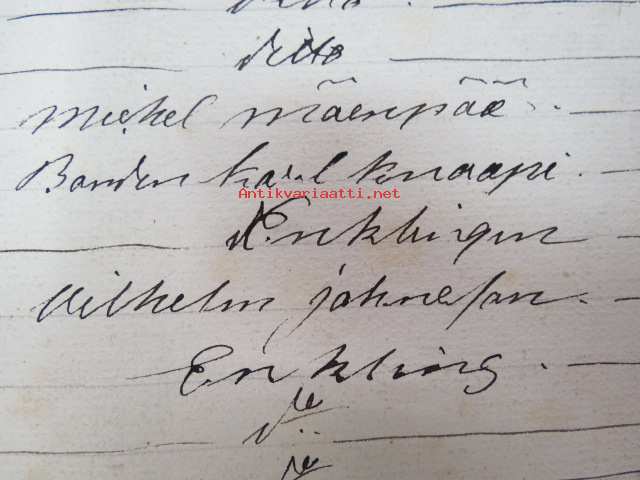 dito
Michel mäenpää.
Bonden karl knaapi.
Antikvariaatti.net
Wilhelm johnesson.
Erikling.